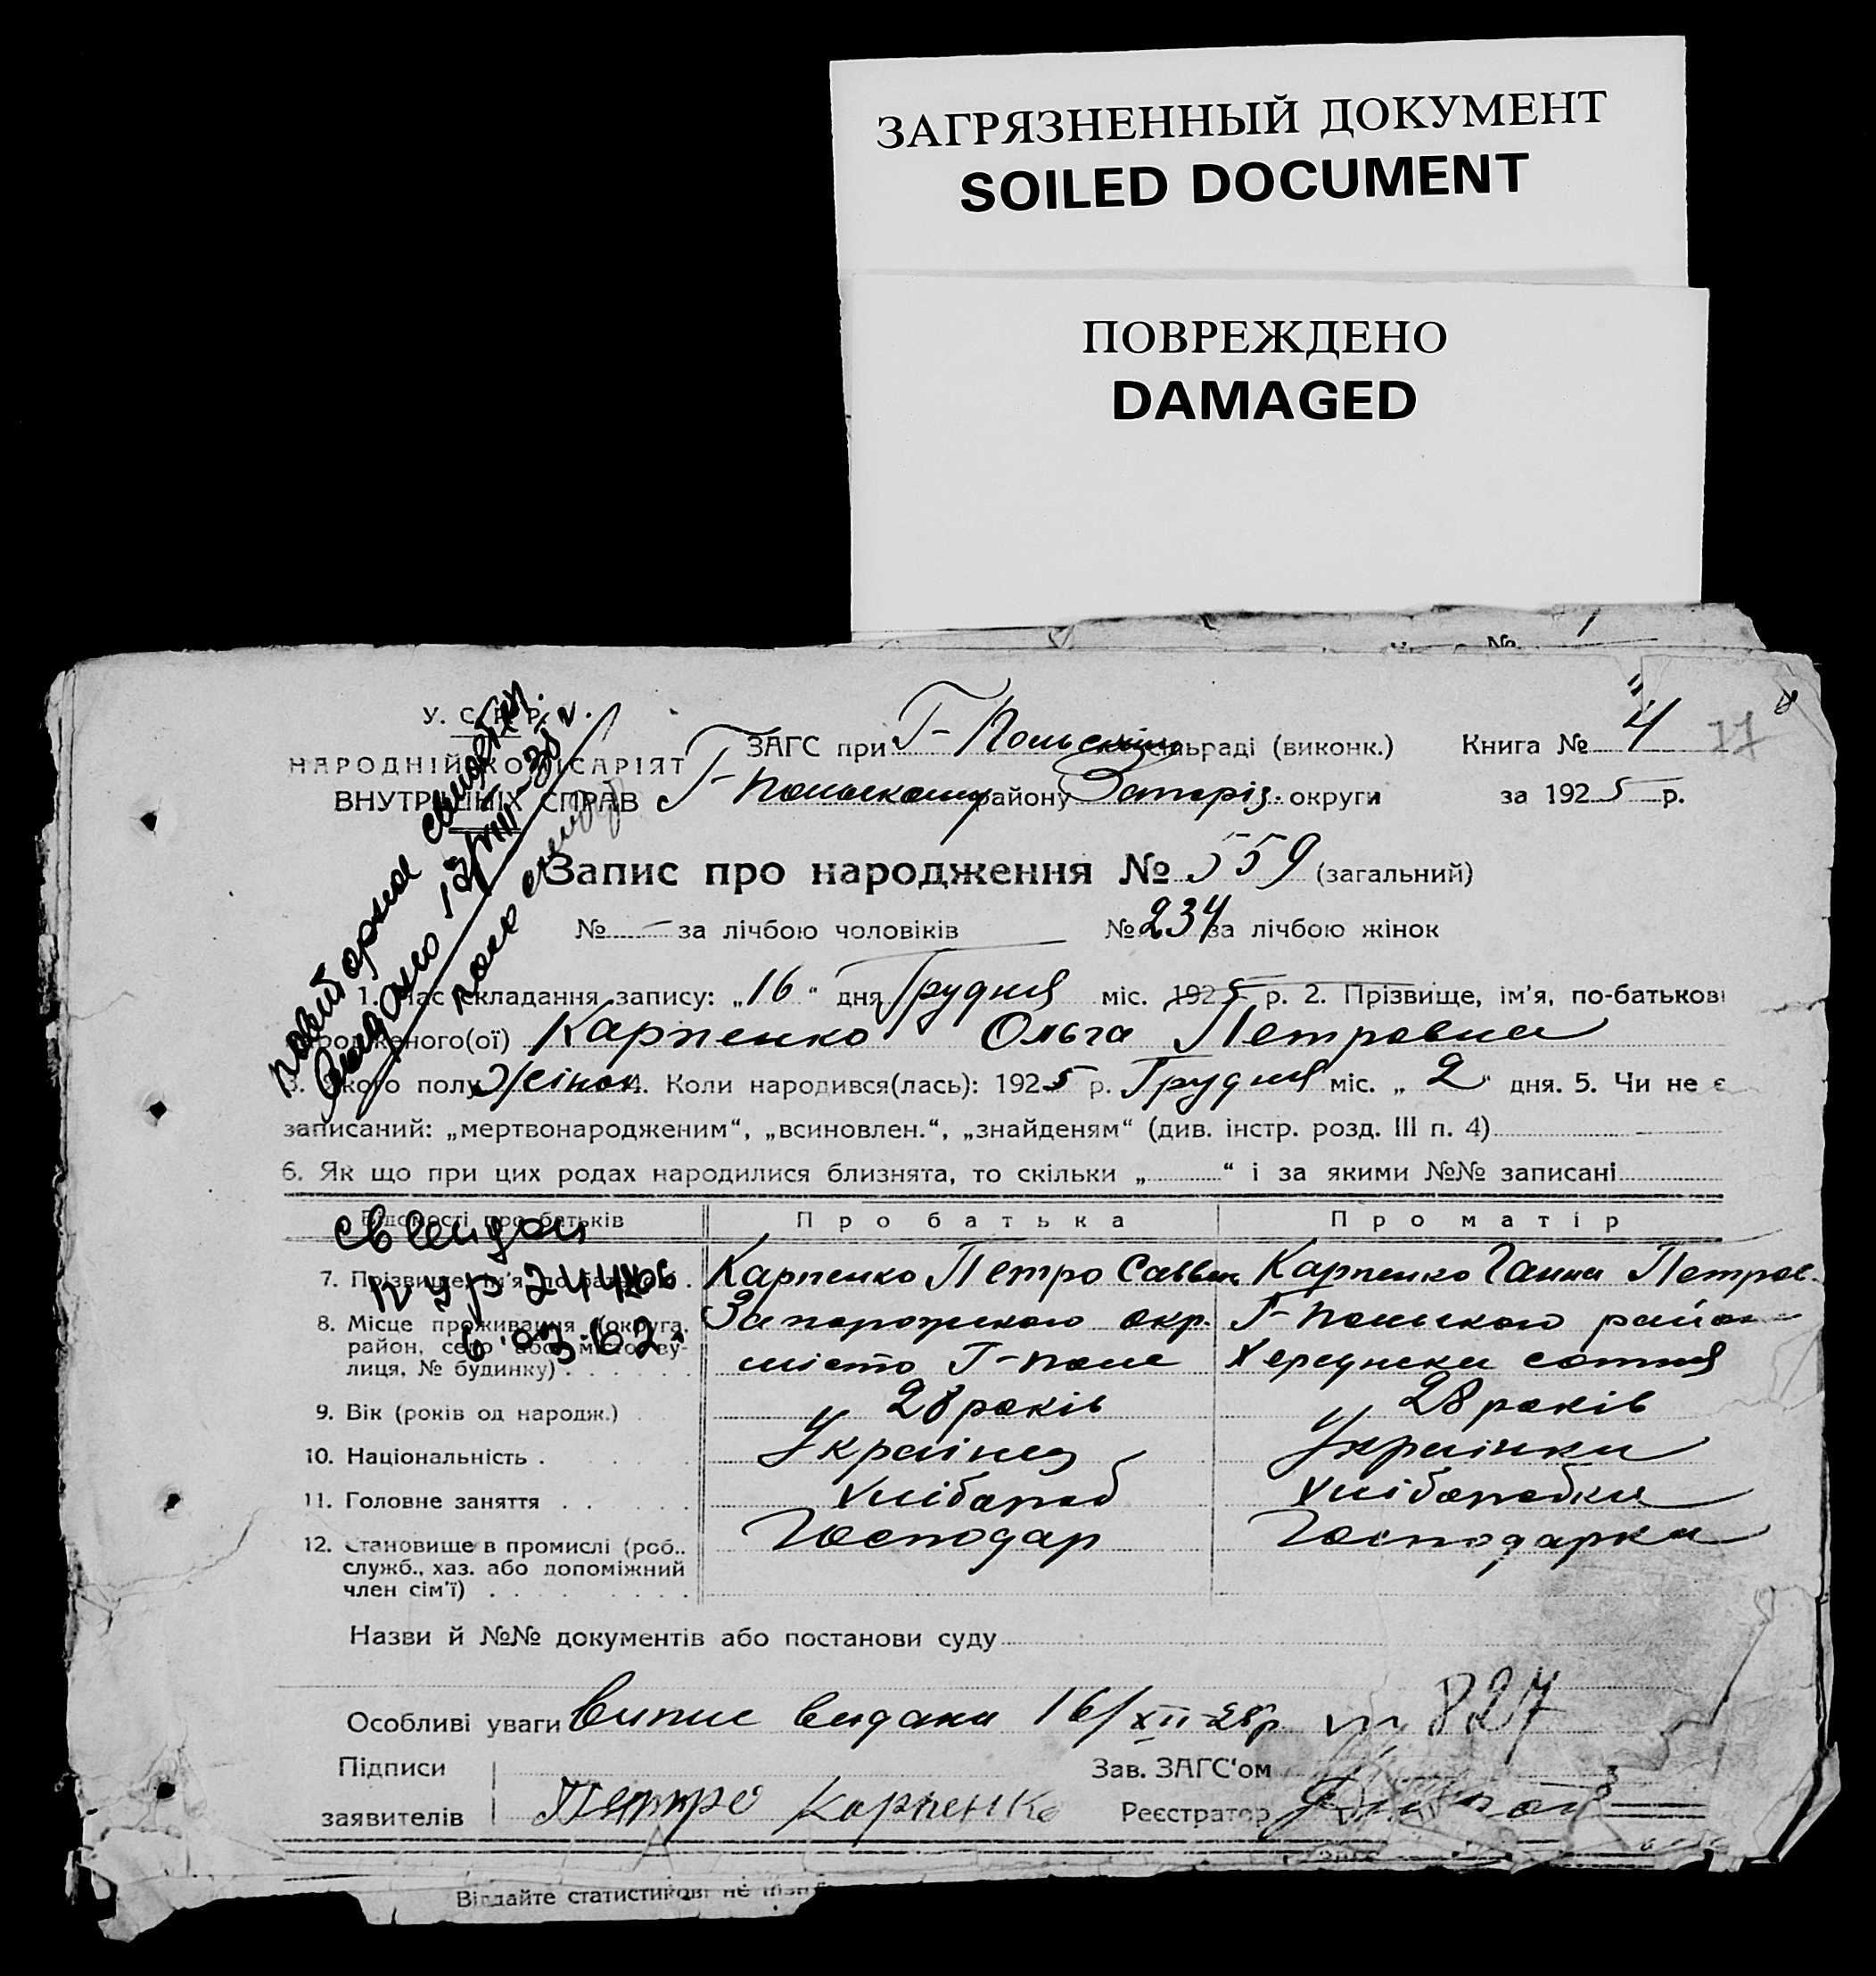 ЗАГРЯЗНЕННЫЙ ДОКУМЕНТ
SOILED DOCUMENT
ПОВРЕЖДЕНО
DAMAGED
№ 1
У. С. Р. Р.
НАРОДНІЙ КОМІСАРІЯТ
ВНУТРІШНІХ СПРАВ
ЗАГС при Г-Польській сільраді (виконк.) Книга № 4
Г-Польскому району Запоріз. округи за 1925 р.
Запис про народження № 559 (загальний)
№ — за лічбою чоловіків № 234 за лічбою жінок
1. Час складання запису: „16“ дня Грудня міс. 1925 р. 2. Прізвище, ім'я, по-батькові
родженого(ої) Карпенко Ольга Петровна
3. Якого полу Жіноч 4. Коли народився(лась): 1925 р. Грудня міс. „2“ дня. 5. Чи не є
записаний: „мертвонародженим“, „всиновлен.“, „знайденям“ (див. інстр. розд. III п. 4)
6. Як що при цих родах народилися близнята, то скільки „ “ і за якими №№ записані
Відомості про батьків Про батька Про матір
7. Прізвище, ім'я, по батькові Карпенко Петро Саввич Карпенко Ганна Петров.
8. Місце проживання (округа, район, село або місто, вулиця, № будинку) Запорожского окр. Г-Польского район
місто Г-поле Херсунски сотня
9. Вік (років од народж.) 28 років 28 років
10. Національність Українец Українка
11. Головне заняття Хлібороб Хліборобка
12. Становище в промислі (роб., служб., хаз. або допоміжний член сім'ї) Господар Господарка
Назви й №№ документів або постанови суду
Особливі уваги Випис видани 16/XII-28р 827
Підписи Зав. ЗАГС'ом
заявителів Петро Карпенко Реєстратор
Віддайте статистикові не
повторна свидет.
Видано 13/VIII-35